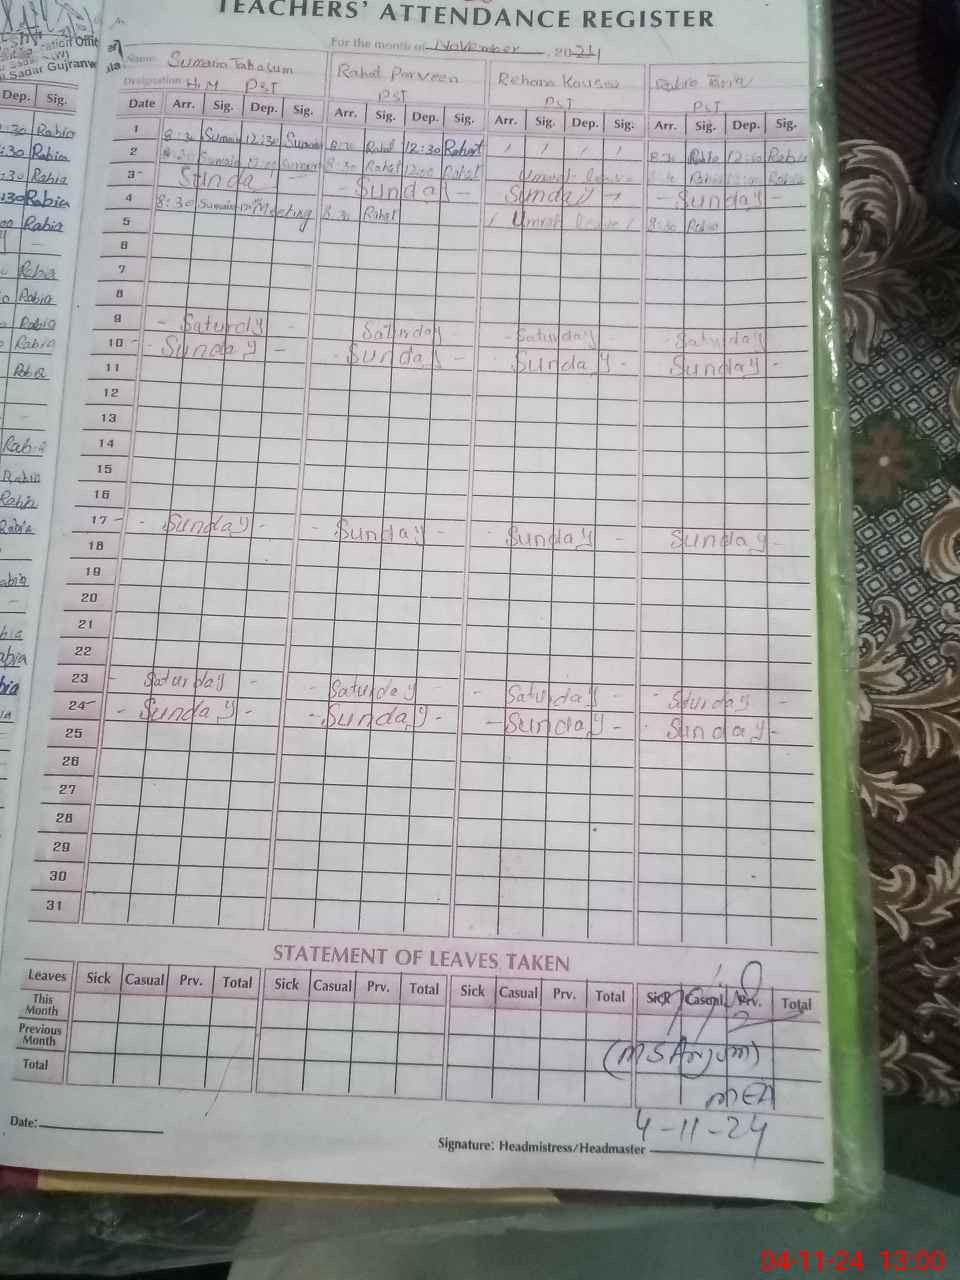 TEACHERS' ATTENDANCE REGISTER
For the month of November, 2024
Name: Sumaira Tabasum Rahat Parveen Rehana Kausar Rabia Tariq
Designation: H.M PST PST PST PST
Date Arr. Sig. Dep. Sig. Arr. Sig. Dep. Sig. Arr. Sig. Dep. Sig. Arr. Sig. Dep. Sig.
1 8:30 Sumaira 12:30 Sumaira 8:30 Rahat 12:30 Rahat / / / / 8:30 Rabia 12:30 Rabia
2 Sumaira 12:00 Sumaira 8:30 Rahat 12:00 Rahat Umrah leave Rabia Rabia
3 Sunda - Sunday - Sunday - Sunday -
4 8:30 Sumaira Meeting 8:30 Rahat / Umrah leave / 8:30 Rabia
5
6
7
8
9 - Saturdy - Saturday - - Saturday - - Saturday -
10 - Sunday - - Sunday - - Sunday - - Sunday -
11
12
13
14
15
16
17 - - Sunday - - Sunday - - Sunday - Sunday -
18
19
20
21
22
23 - Saturday - - Saturday - Saturday - - Saturday -
24 - Sunday - - Sunday - - Sunday - - Sunday -
25
26
27
28
29
30
31
STATEMENT OF LEAVES TAKEN
Leaves Sick Casual Prv. Total Sick Casual Prv. Total Sick Casual Prv. Total Sick Casual Prv. Total
This Month
Previous Month
Total
(M S Anjum)
MEA
4-11-24
Date:
Signature: Headmistress/Headmaster
Sadar Gujranw
Dep. Sig.
:30 Rabia
:30 Rabia
:30 Rabia
:30 Rabia
00 Rabia
Rabia
Rabia
Rabia
Rabia
Rabia
Rabia
Rabia
Rabia
Rabia
04-11-24 13:00